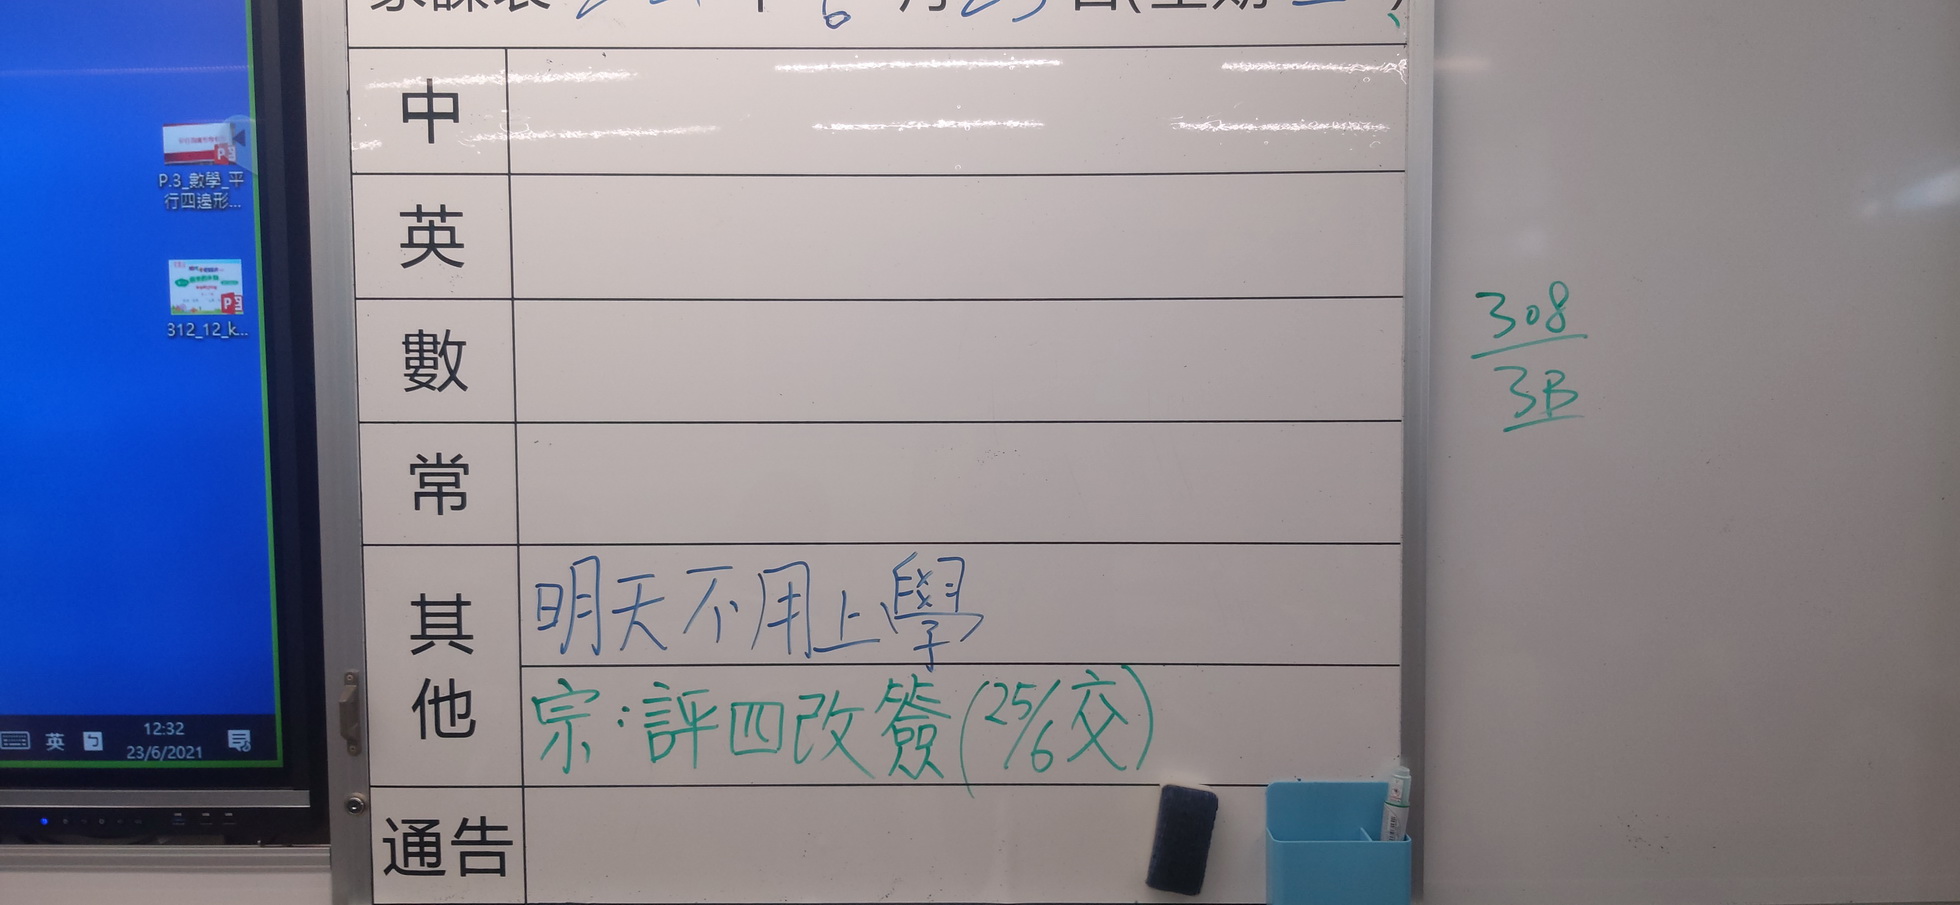 P.3_數學_平
行四邊形...
312_12_k...
英
12:32
23/6/2021
6 月 23 日(星期三)
中
英
數
常
其他
明天不用上學
宗:評四改簽(25/6交)
通告
308
3B